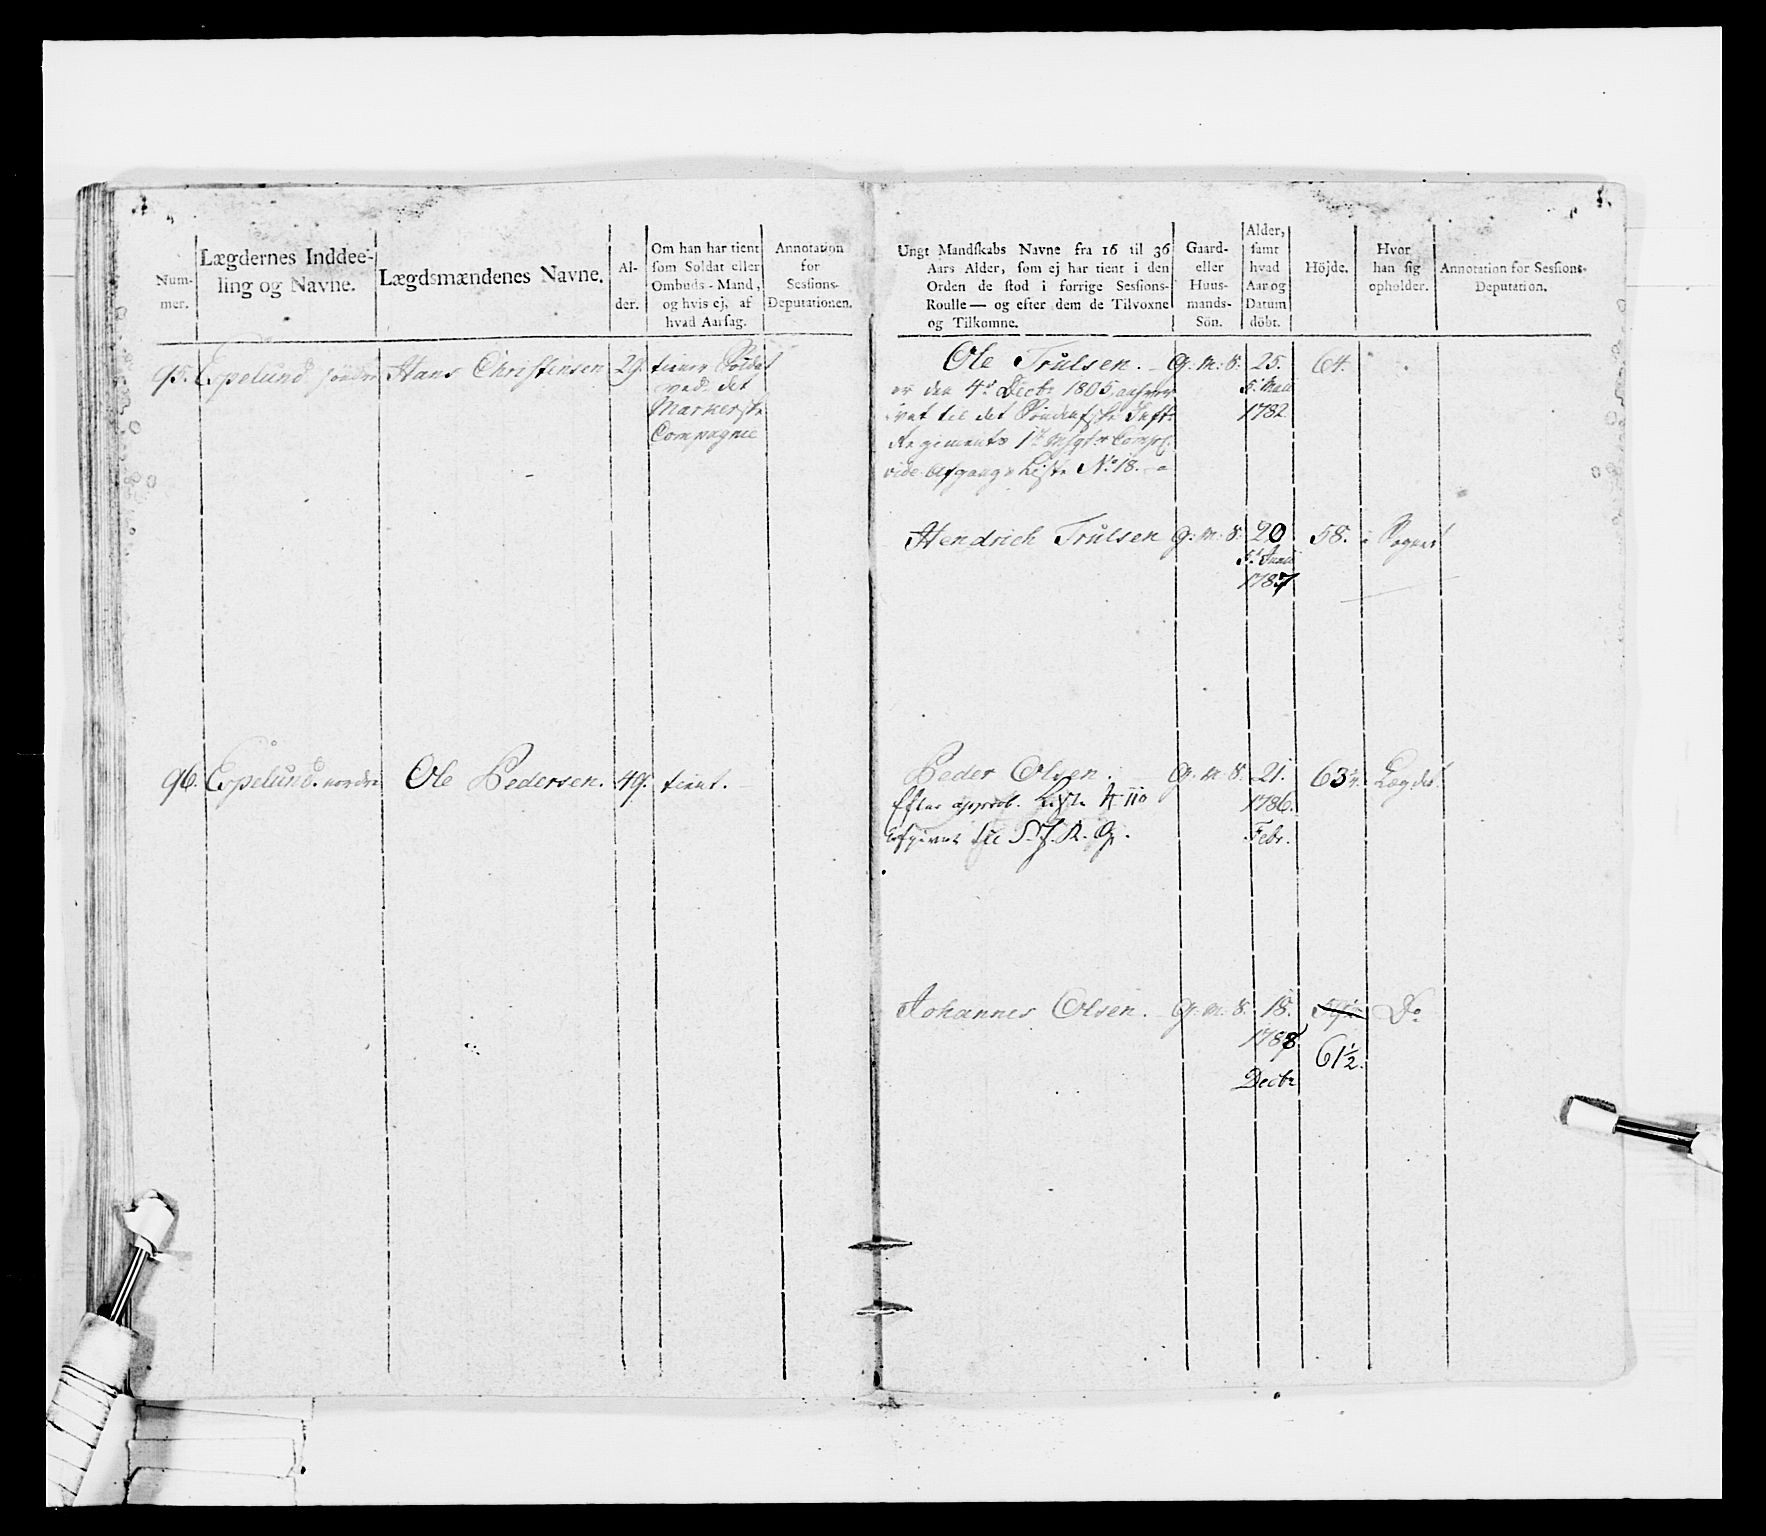 Num-
mer.
Lægdernes Inddee-
ling og Navne.
Lægdsmændenes Navne.
Al-
der.
Om han har tient
som Soldat eller
Ombuds-Mand,
og hvis ej, af
hvad Aarsag.
Annotation
for
Sessions-
Deputationen.
95. Espelund søndre Hans Christensen 29. tiener Soldat
ved det
Markerske
Compagnie
96. Espelund nordre Ole Pedersen. 49. tient.
Ungt Mandskabs Navne fra 16 til 36
Aars Alder, som ej har tient i den
Orden de stod i forrige Sessions-
Roulle — og efter dem de Tilvoxne
og Tilkomne.
Gaard-
eller
Huus-
mands-
Sön.
Alder,
samt
hvad
Aar og
Datum
döbt.
Höjde.
Hvor
han sig
opholder.
Annotation for Sessions-
Deputation.
Ole Trulsen. G. M. S. 25. 64.
er den 4de Decbr 1805
til det
1782
Regiments
vide Afgangs Liste No 18.
Hendrich Trulsen G. M. S. 20 58. i Sognet
1787
Peder Olsen. G. M. S. 21. 63 Lægdet
Efter approb. Liste
1786.
Febr.
Johannes Olsen. G. M. S. 18. Do
1788
61 1/2.
Decbr